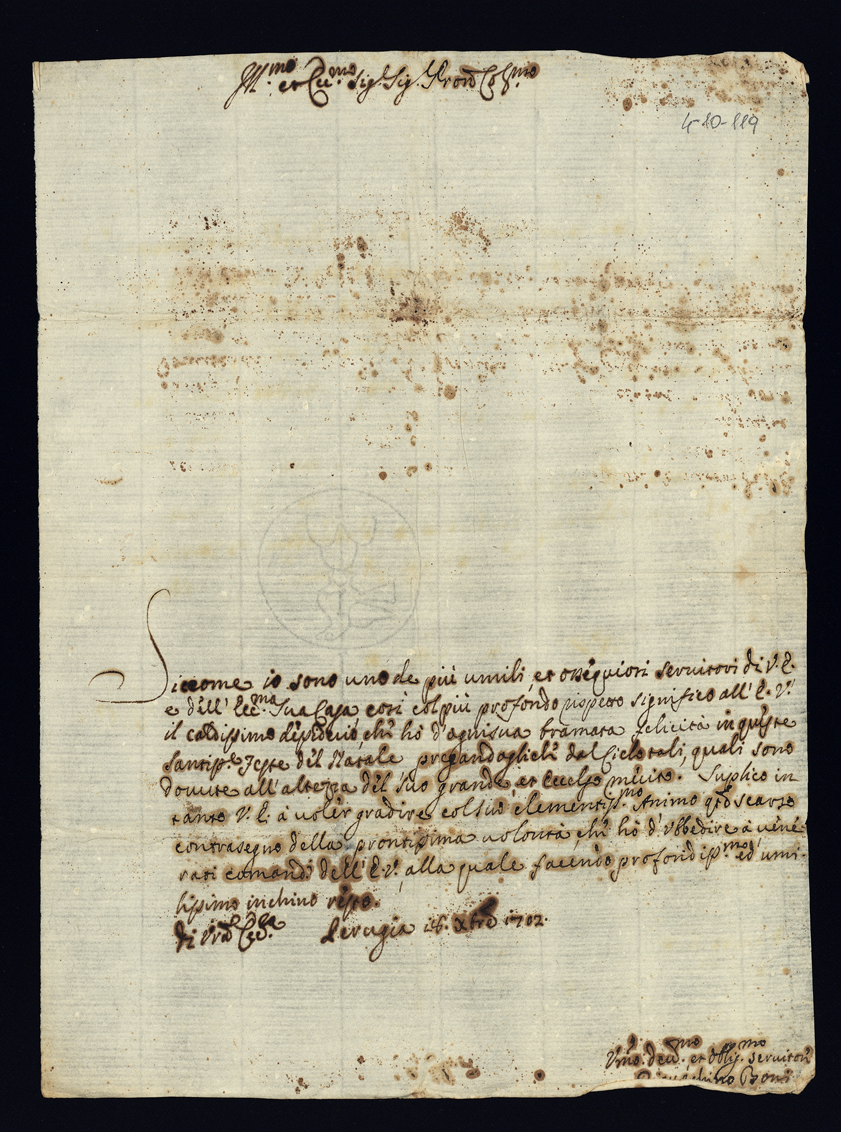 Ill.mo et Ecc.mo Sig.r Sig.r Pron Col.mo
4-10-119
Siccome io sono uno de più umili, et ossequiosi servitori di V. E.
e dell' Ecc.ma Sua Casa così col più profondo rispetto significo all' E. V.
il caldissimo desiderio, che hò d'ogni sua bramata felicità in queste
Santiss.e Feste del Natale pregandaglieli dal Cielo tali, quali sono
dovute all'altezza del suo grande, et Eccelso merito. Suplico in
tanto V. E. à voler gradire col suo clementiss.mo Animo q.to scarso
contrasegno della prontissima volontà, che hò d'Ubbedire à vene-
rati comandi dell' E. V., alla quale facendo profondiss.mo ed umi-
lissimo inchino resto.
di Vra Ecc.za Perugia 16. Xbre 1702.
Um.o dev.mo et oblig.mo servitore
Boni